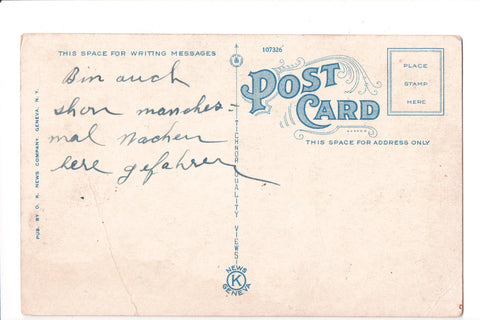 THIS SPACE FOR WRITING MESSAGES
Bin auch
schon manches-
mal
here gefahren
PUB. BY O. R. NEWS COMPANY, GENEVA, N. Y.
TICHNOR QUALITY VIEWS
NEWS
K
GENEVA
107326
POST
CARD
THIS SPACE FOR ADDRESS ONLY
PLACE
STAMP
HERE